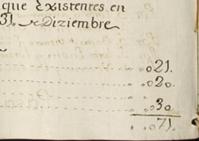 que Existentes en
31. de Diziembre
..021.
..020.
..030.
..071.